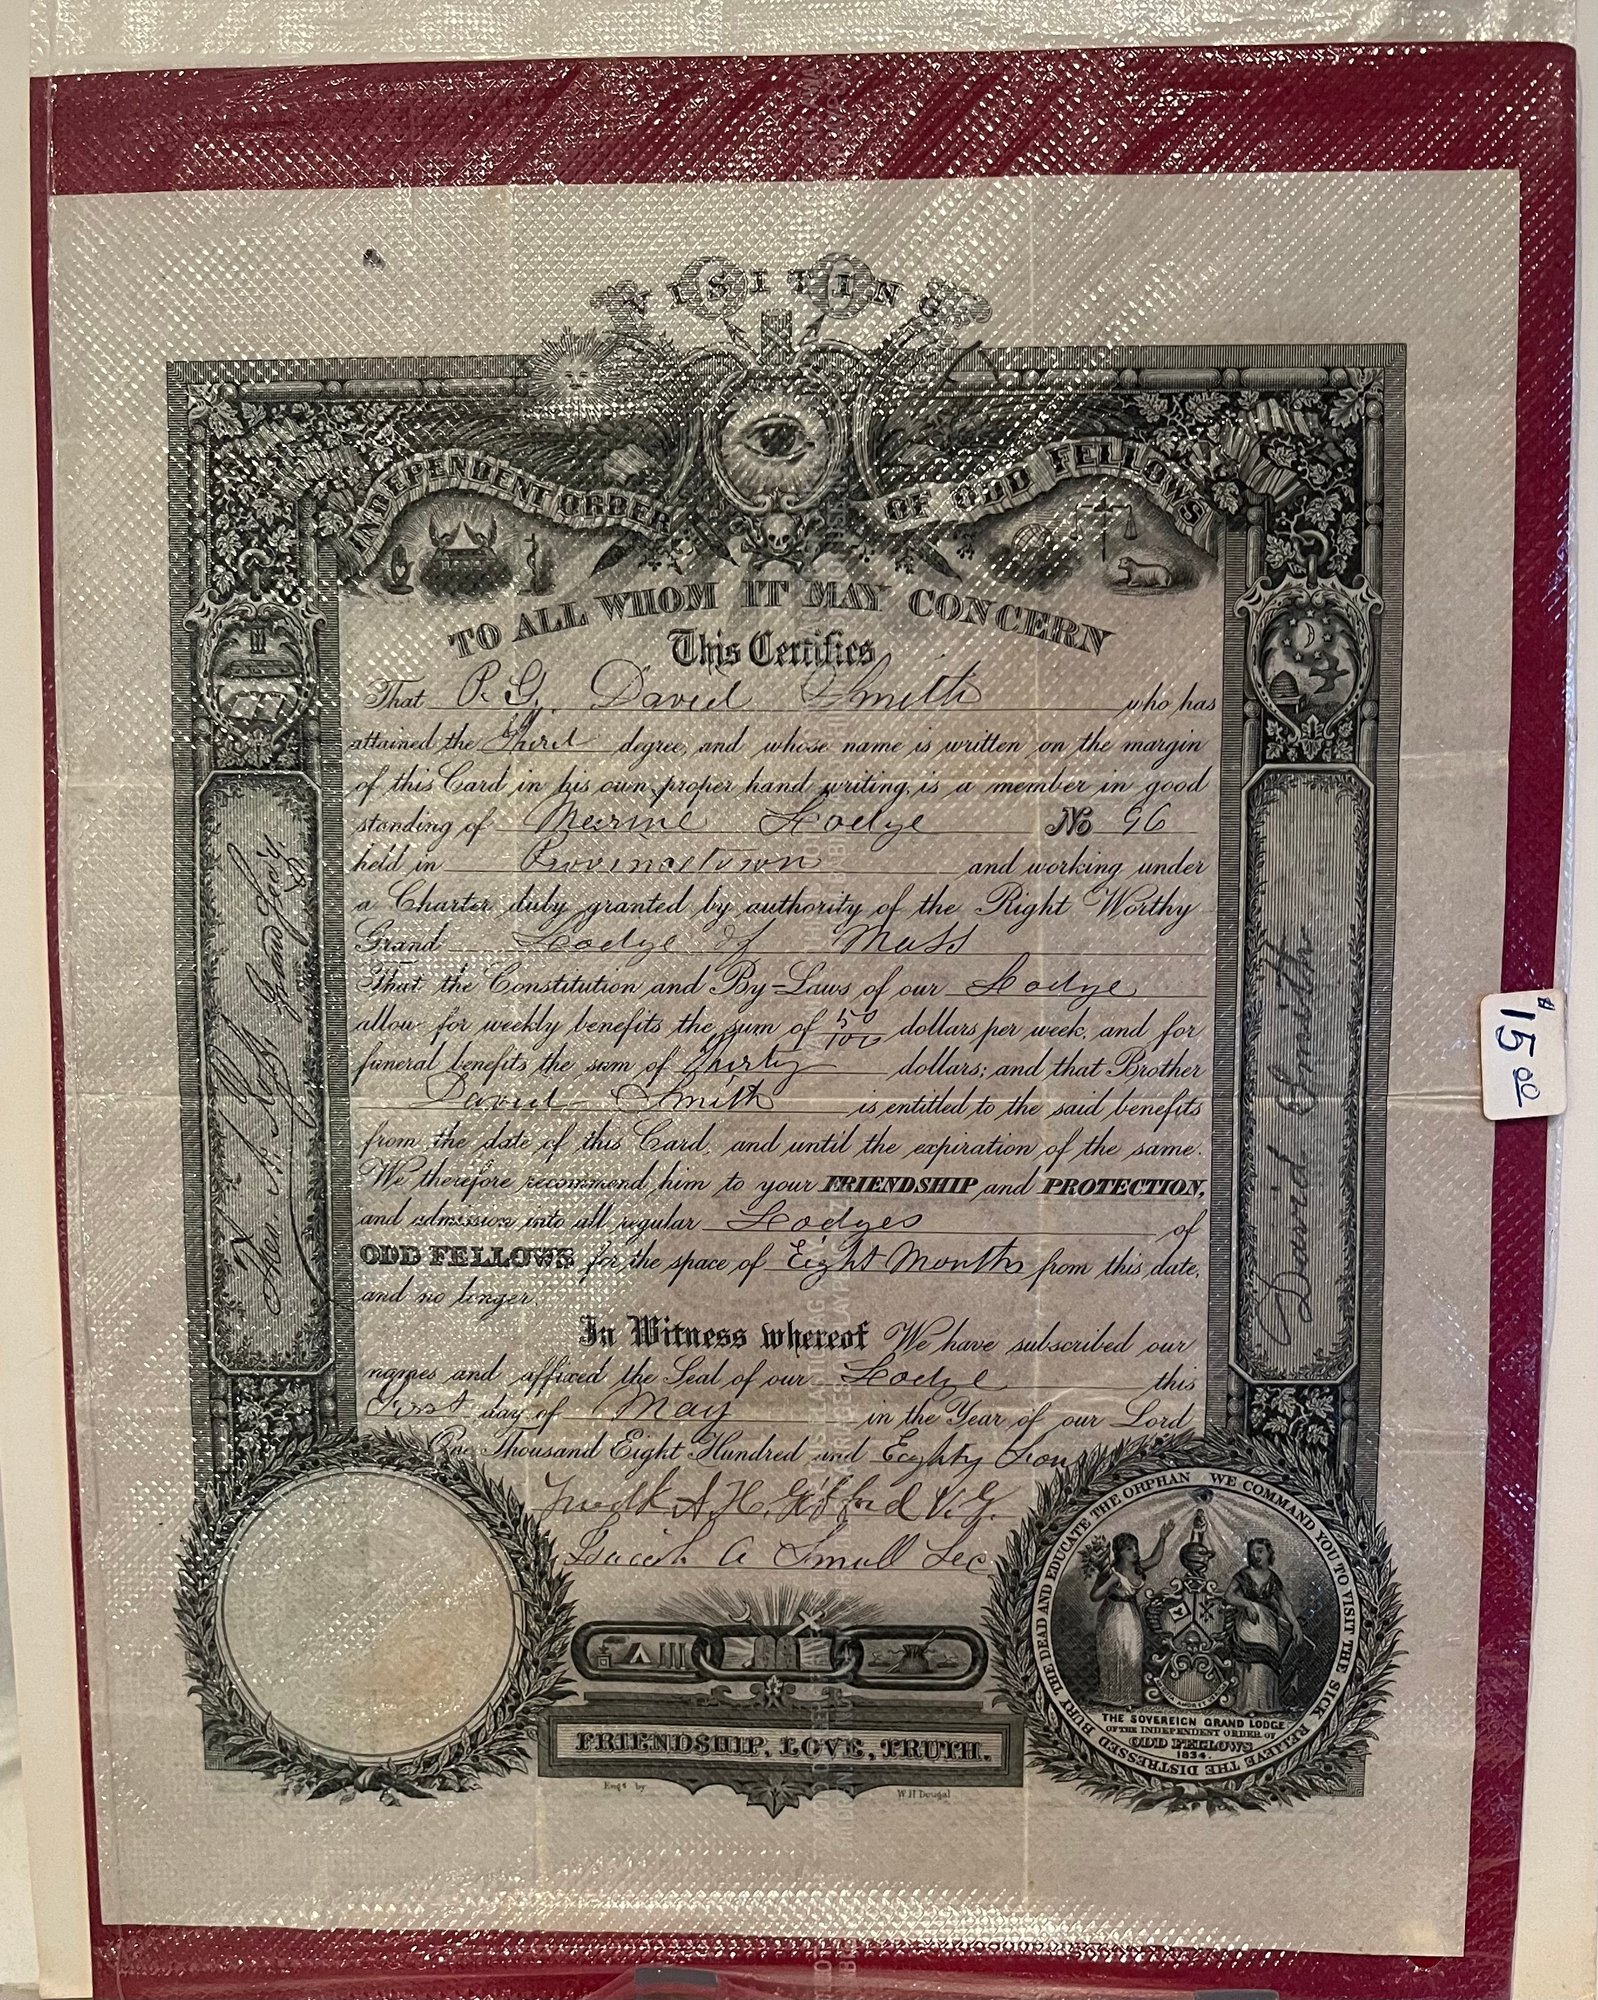 VISITING CARD
INDEPENDENT ORDER OF ODD FELLOWS
TO ALL WHOM IT MAY CONCERN
This Certifies
That P. G. David Smith who has
attained the Third degree, and whose name is written on the margin
of this Card in his own proper hand writing, is a member in good
standing of Marine Lodge No 96
held in Provincetown and working under
a Charter duly granted by authority of the Right Worthy
Grand Lodge of Mass
That the Constitution and By-Laws of our Lodge
allow for weekly benefits the sum of 50/100 dollars per week, and for
funeral benefits the sum of Thirty dollars; and that Brother
David Smith is entitled to the said benefits
from the date of this Card, and until the expiration of the same.
We therefore recommend him to your FRIENDSHIP and PROTECTION,
and admission into all regular Lodges of
ODD FELLOWS for the space of Eight Months from this date,
and no longer.
In Witness whereof We have subscribed our
names and affixed the Seal of our Lodge this
First day of May in the Year of our Lord
One Thousand Eight Hundred and Eighty Four
A. H. Gifford V. G.
Isaiah A Small Sec
Grand Secy.
David Smith
$15 00
BURY THE DEAD AND EDUCATE THE ORPHAN WE COMMAND YOU TO VISIT THE SICK RELIEVE THE DISTRESSED
THE SOVEREIGN GRAND LODGE
OF THE INDEPENDENT ORDER OF
ODD FELLOWS
1834.
FRIENDSHIP, LOVE, TRUTH.
Engd by W.H Dougal